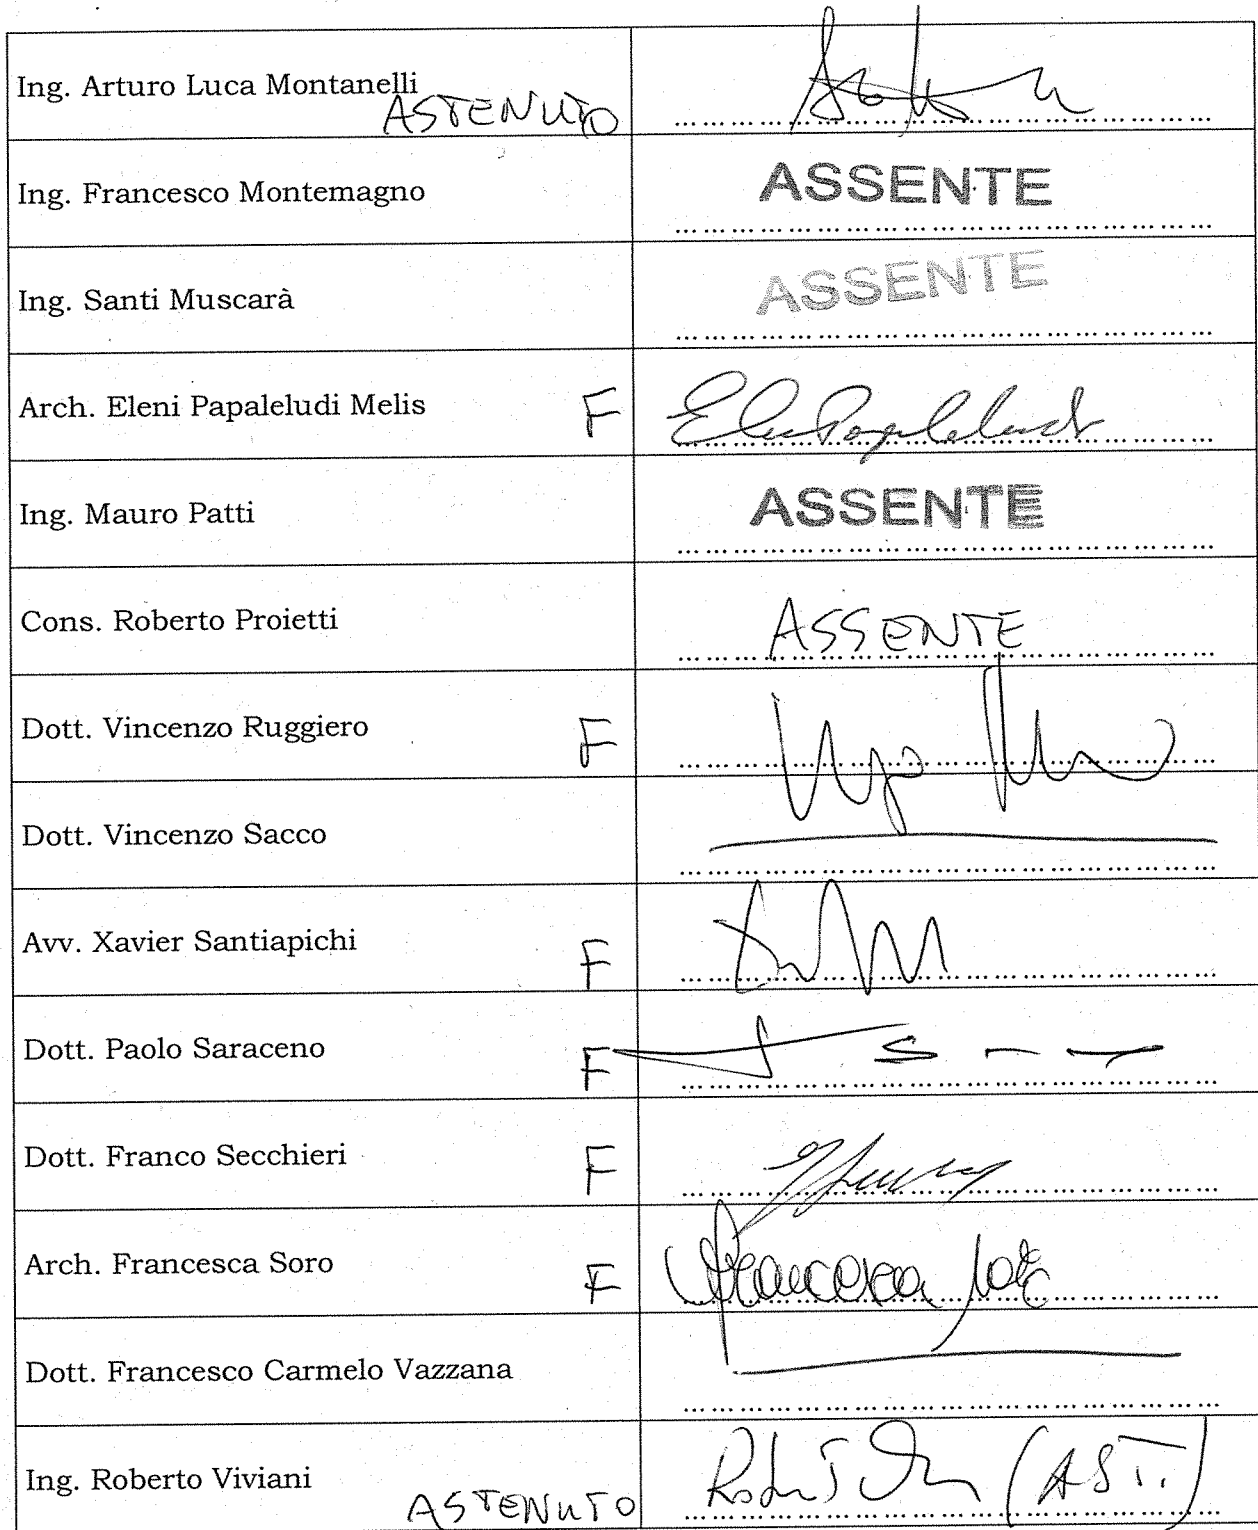 Ing. Arturo Luca Montanelli
ASTENUTO
Ing. Francesco Montemagno
ASSENTE
Ing. Santi Muscarà
ASSENTE
Arch. Eleni Papaleludi Melis F
Ing. Mauro Patti
ASSENTE
Cons. Roberto Proietti
ASSENTE
Dott. Vincenzo Ruggiero F
Dott. Vincenzo Sacco
Avv. Xavier Santiapichi F
Dott. Paolo Saraceno F
Dott. Franco Secchieri F
Arch. Francesca Soro F
Francesca
Dott. Francesco Carmelo Vazzana
Ing. Roberto Viviani
ASTENUTO
(AST.)